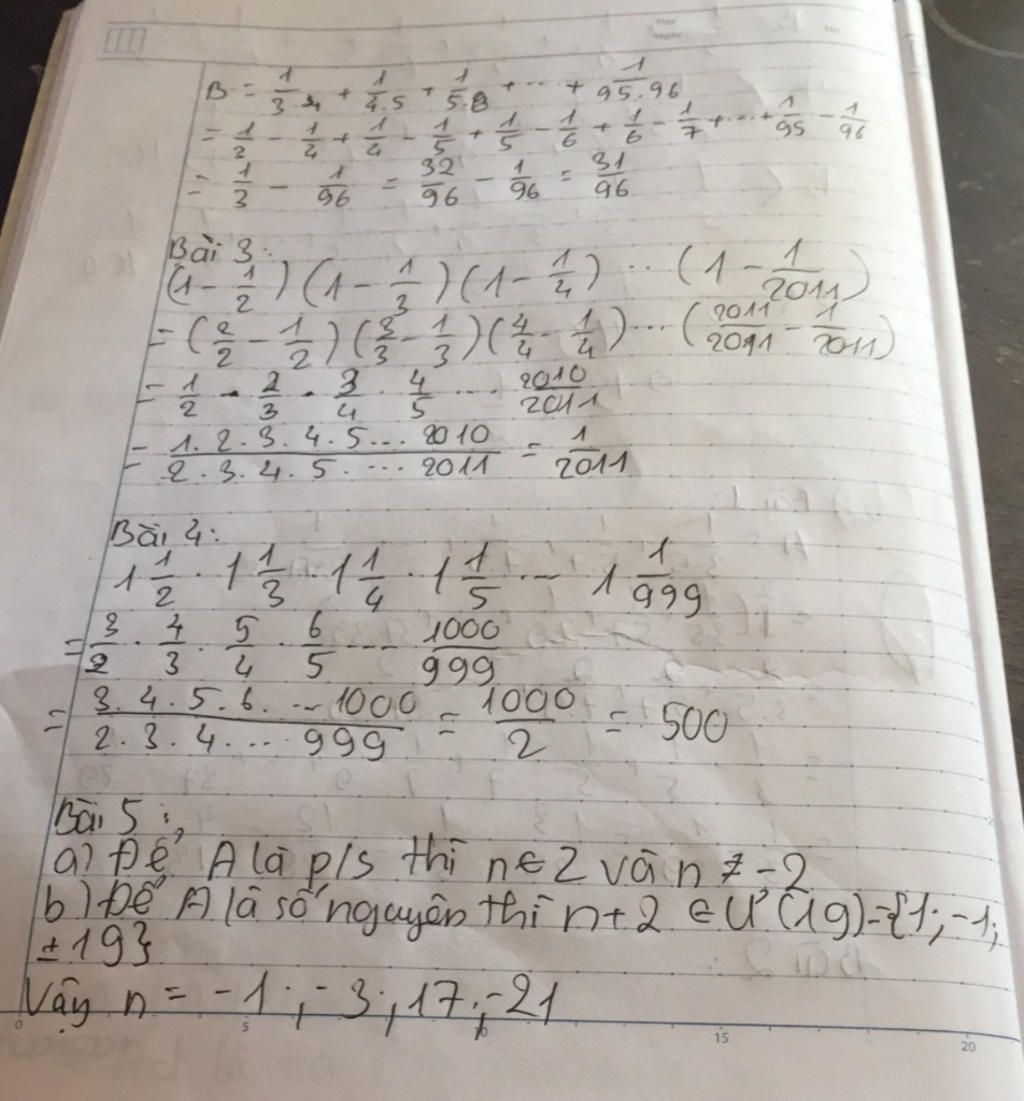 Thứ
Ngày
No.
B = 1/3.4 + 1/4.5 + 1/5.6 + ... + 1/95.96
= 1/2 - 1/4 + 1/4 - 1/5 + 1/5 - 1/6 + 1/6 - 1/7 + ... + 1/95 - 1/96
= 1/3 - 1/96 = 32/96 - 1/96 = 31/96
Bài 3:
(1 - 1/2) (1 - 1/3) (1 - 1/4) ... (1 - 1/2011)
= (2/2 - 1/2) (3/3 - 1/3) (4/4 - 1/4) ... (2011/2011 - 1/2011)
= 1/2 . 2/3 . 3/4 . 4/5 ... 2010/2011
= 1.2.3.4.5...2010/2.3.4.5....2011 = 1/2011
Bài 4:
1 1/2 . 1 1/3 . 1 1/4 . 1 1/5 ... 1 1/999
= 3/2 . 4/3 . 5/4 . 6/5 ... 1000/999
= 3.4.5.6. ...1000/2.3.4....999 = 1000/2 = 500
Bài 5:
a) Để A là p/s thì n ∈ Z và n ≠ -2
b) Để A là số nguyên thì n+2 ∈ Ư (19) = {1; -1;
± 19}
Vậy n = -1; -3; 17; -21
0 5 10 15 20